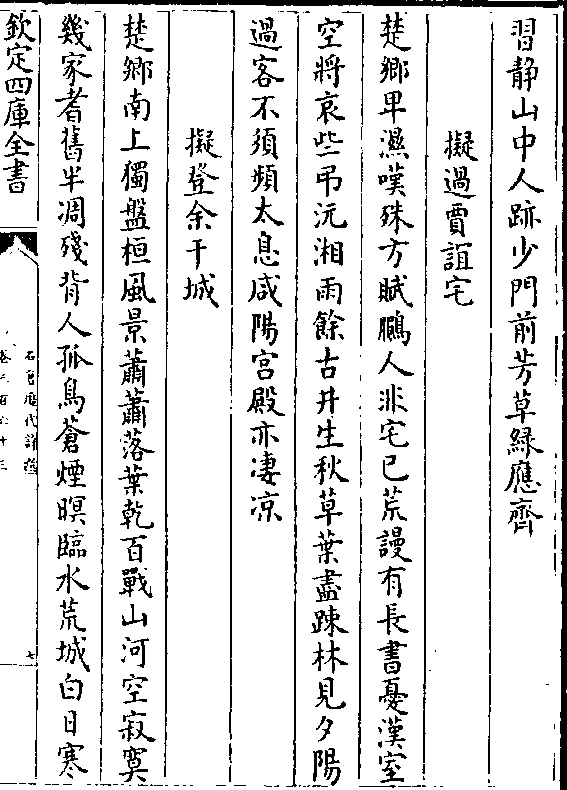 習静山中人跡少門前芳草緑應齊
擬過賈誼宅
楚鄉卑濕嘆殊方賦鵩人非宅已荒謾有長書憂漢室
空將哀些弔沅湘雨餘古井生秋草葉盡踈林見夕陽
過客不須頻太息咸陽宫殿亦凄凉
擬登余干城
楚鄉南上獨盤桓風景蕭蕭落葉乾百戰山河空寂寞
幾家耆舊半凋殘背人孤鳥蒼煙暝臨水荒城白日寒
欽定四庫全書
七